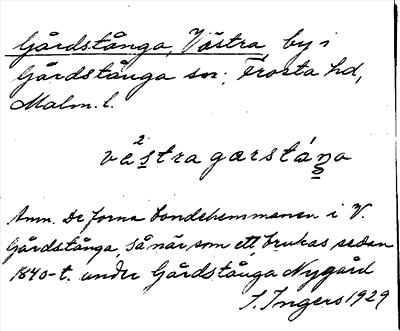 Gårdstånga, Västra, by i
Gårdstånga sn; Frosta hd,
Malm. l.
Anm. De forna bondehemmanen i V.
Gårdstånga, så när som ett, brukas sedan
1840-t. under Gårdstånga Nygård
I. Ingers 1929